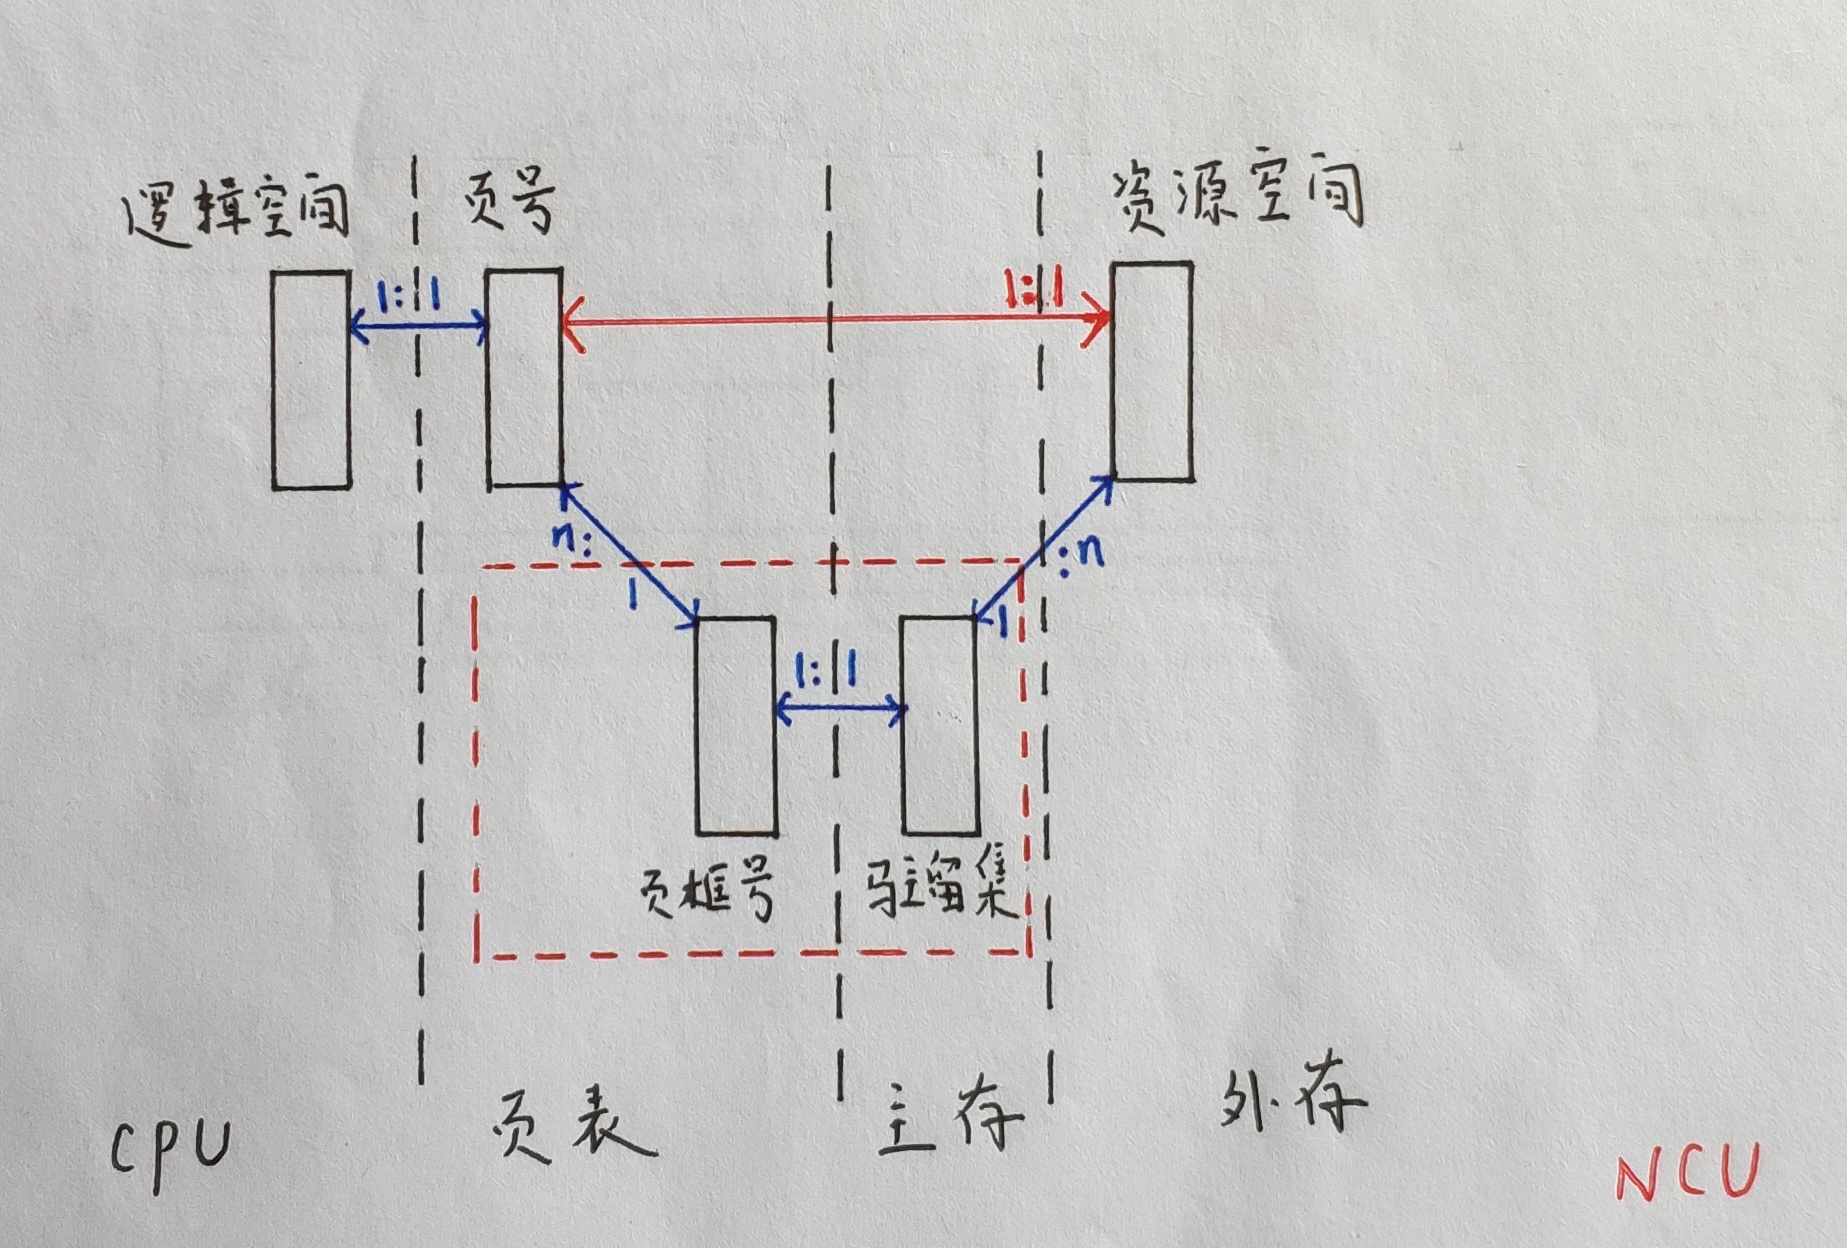 逻辑空间 页号 资源空间
1:1 1:1
n:1 1:n
1:1
页框号 驻留集
CPU 页表 主存 外存 NCU